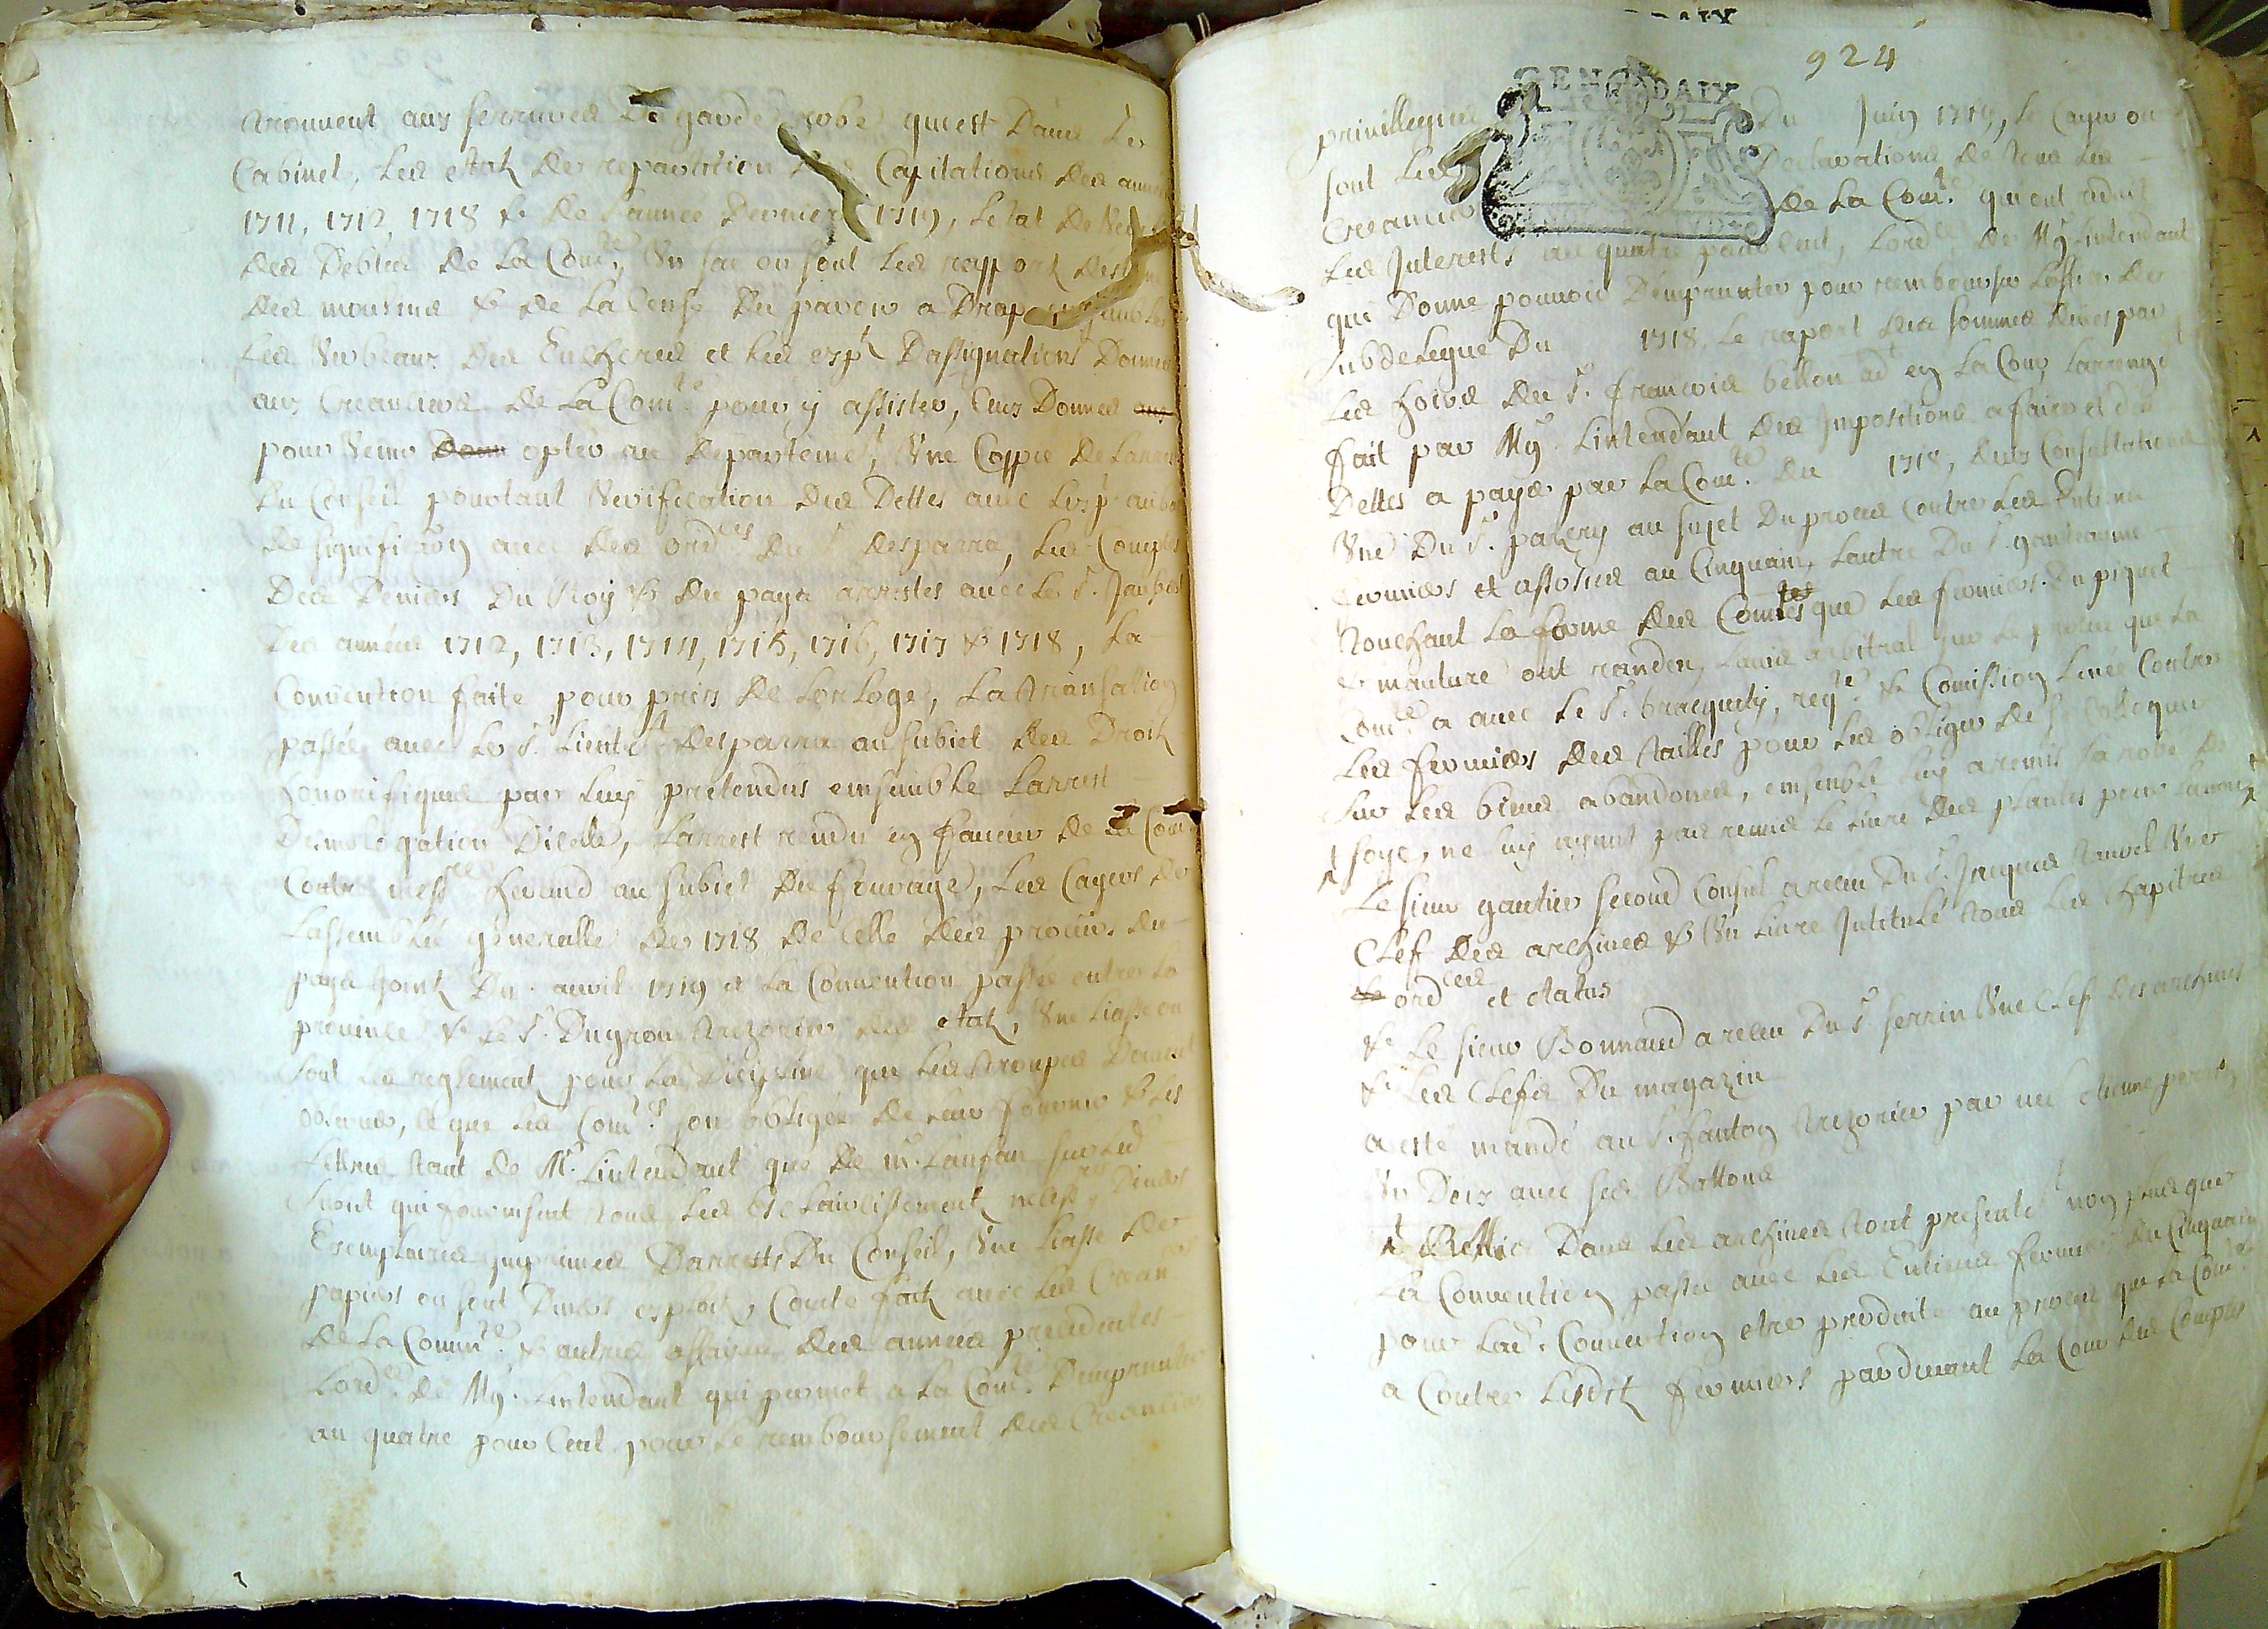 trouvent aux serrures De garde robe quiest Dans Le
Cabinet, Les estatz De repartition des Capitations Des années
1711, 1712, 1718 & De L'année Derniere 1719, Letat De
Des Debtes De La Com.te, Un sac ou sont Les rapportz
Des moulins & De La Cense Du pareur a Drap ensemble
Les Verbeaux Des Encheres et Les exp.s Dassignations Données
aux Creanciers De La Com.te pour y assister, Eux Donnés
pour Venir opter au Departem.t, Une Coppie De Larrest
Du Conseil portant Verification Des Dettes avec Lexp.
De signification avec Des ord.ces Du S.r Desparra, Les Comptes
Des Deniers Du Roy & Du pays arrestes avec Le S.r Jaubert
Des années 1712, 1713, 1714, 1715, 1716, 1717 & 1718, La
Convention faite pour prix De Lorloge, La transaction
passée avec Le S.r Lieute.t Desparra au subiet Des Droitz
honorifiques par Luy pretendus ensemble Larrest
Domologation Dicelle, Larrest rendu en faveur De La Com.te
Contre mess.re heraud au subiet Du fouvage, Les Cayers De
Lassemblée generalle De 1718 De celle Des procur. du
pays joint Du avril 1719 et La Convention passée entre La
province & Le S.r Dugrou trezorier Des etatz, Une Liasse ou
sont Les reglement pour La Dicipline que Les troupes Doivent
observer, ce que Les Com.tes son obligées De Leur fournir & Les
Lettres tant De M.r Lintendant que De m.r Lanfan sur Led.
qui fournisent tous Les Esclaircissement necess.res, Divers
Exemplaires Imprimes Darrests Du Conseil, Une Liasse De
papiers ou sont Divers exploitz, Conte faitz avec Les Crean.ers
De La Comm.te & autres affaires Des années precedentes
Lord.ce De Mg.r Lintendant qui permet a La Com.te Demprunter
au quatre pour Cent pour Le remboursement Des Creanciers
924
GEN DAIX
privillegies Du Juin 1719, Le Cayer ou
sont Les Declarations De tous Les
Creanciers De La Com.te qui ont reduit
Les Interests au quatre pour Cent, Lord.ce De Mg.r Lintendant
qui Donne pouvoir Demprunter pour rembourser De
subdelegué Du 1718, Le raport Des sommes Dues par
Les hoirs Du S.r francois bellon ad.t en La Cour, Larrenge.t
fait par Mg.r Lintendant Des Impositions a faire et Des
Dettes a payer par La Com.te Du 1718, Deux Consultations
Une Du S.r pazery au sujet Du proces Contre Les
fermiers et associes au Cinquain, Lautre Du S.r ganteaume
touchant La forme Des Comtes que Les fermiers Du piquet
& mauture ont randeu, Lavis arbitral sur Le proces que La
Com.te a avec Le S.r bracquety, req.te & Comission Levée Contre
Les fermiers Des tailles pour Les obliger De se Colloquer
sur Les biens abandonnes, ensemble Luy a remis La robe De
soye, ne Luy ayant pas remis Le Livre Des plantes pour
Le sieur gautier second Consul a receu Du S.r Jacques Une
Clef Des archives & Un Livre Intitulé tous Les chapitres
ord.ces et status
& Le sieur Bonnaud a receu Du S.r serrin Une Clef Des archives
& Les Clefs Du magazin
a esté mandé au S.r fanton trezorier par me
Un Dois avec ses Battons
Dans Les archives tout presente.t non plus que
La Convention passée avec Les fermiers Du Cinquain
pour Lad. Convention etre produite au proces que La Com.te
a Contre Lesditz fermiers pardevant La Cour Des Comptes